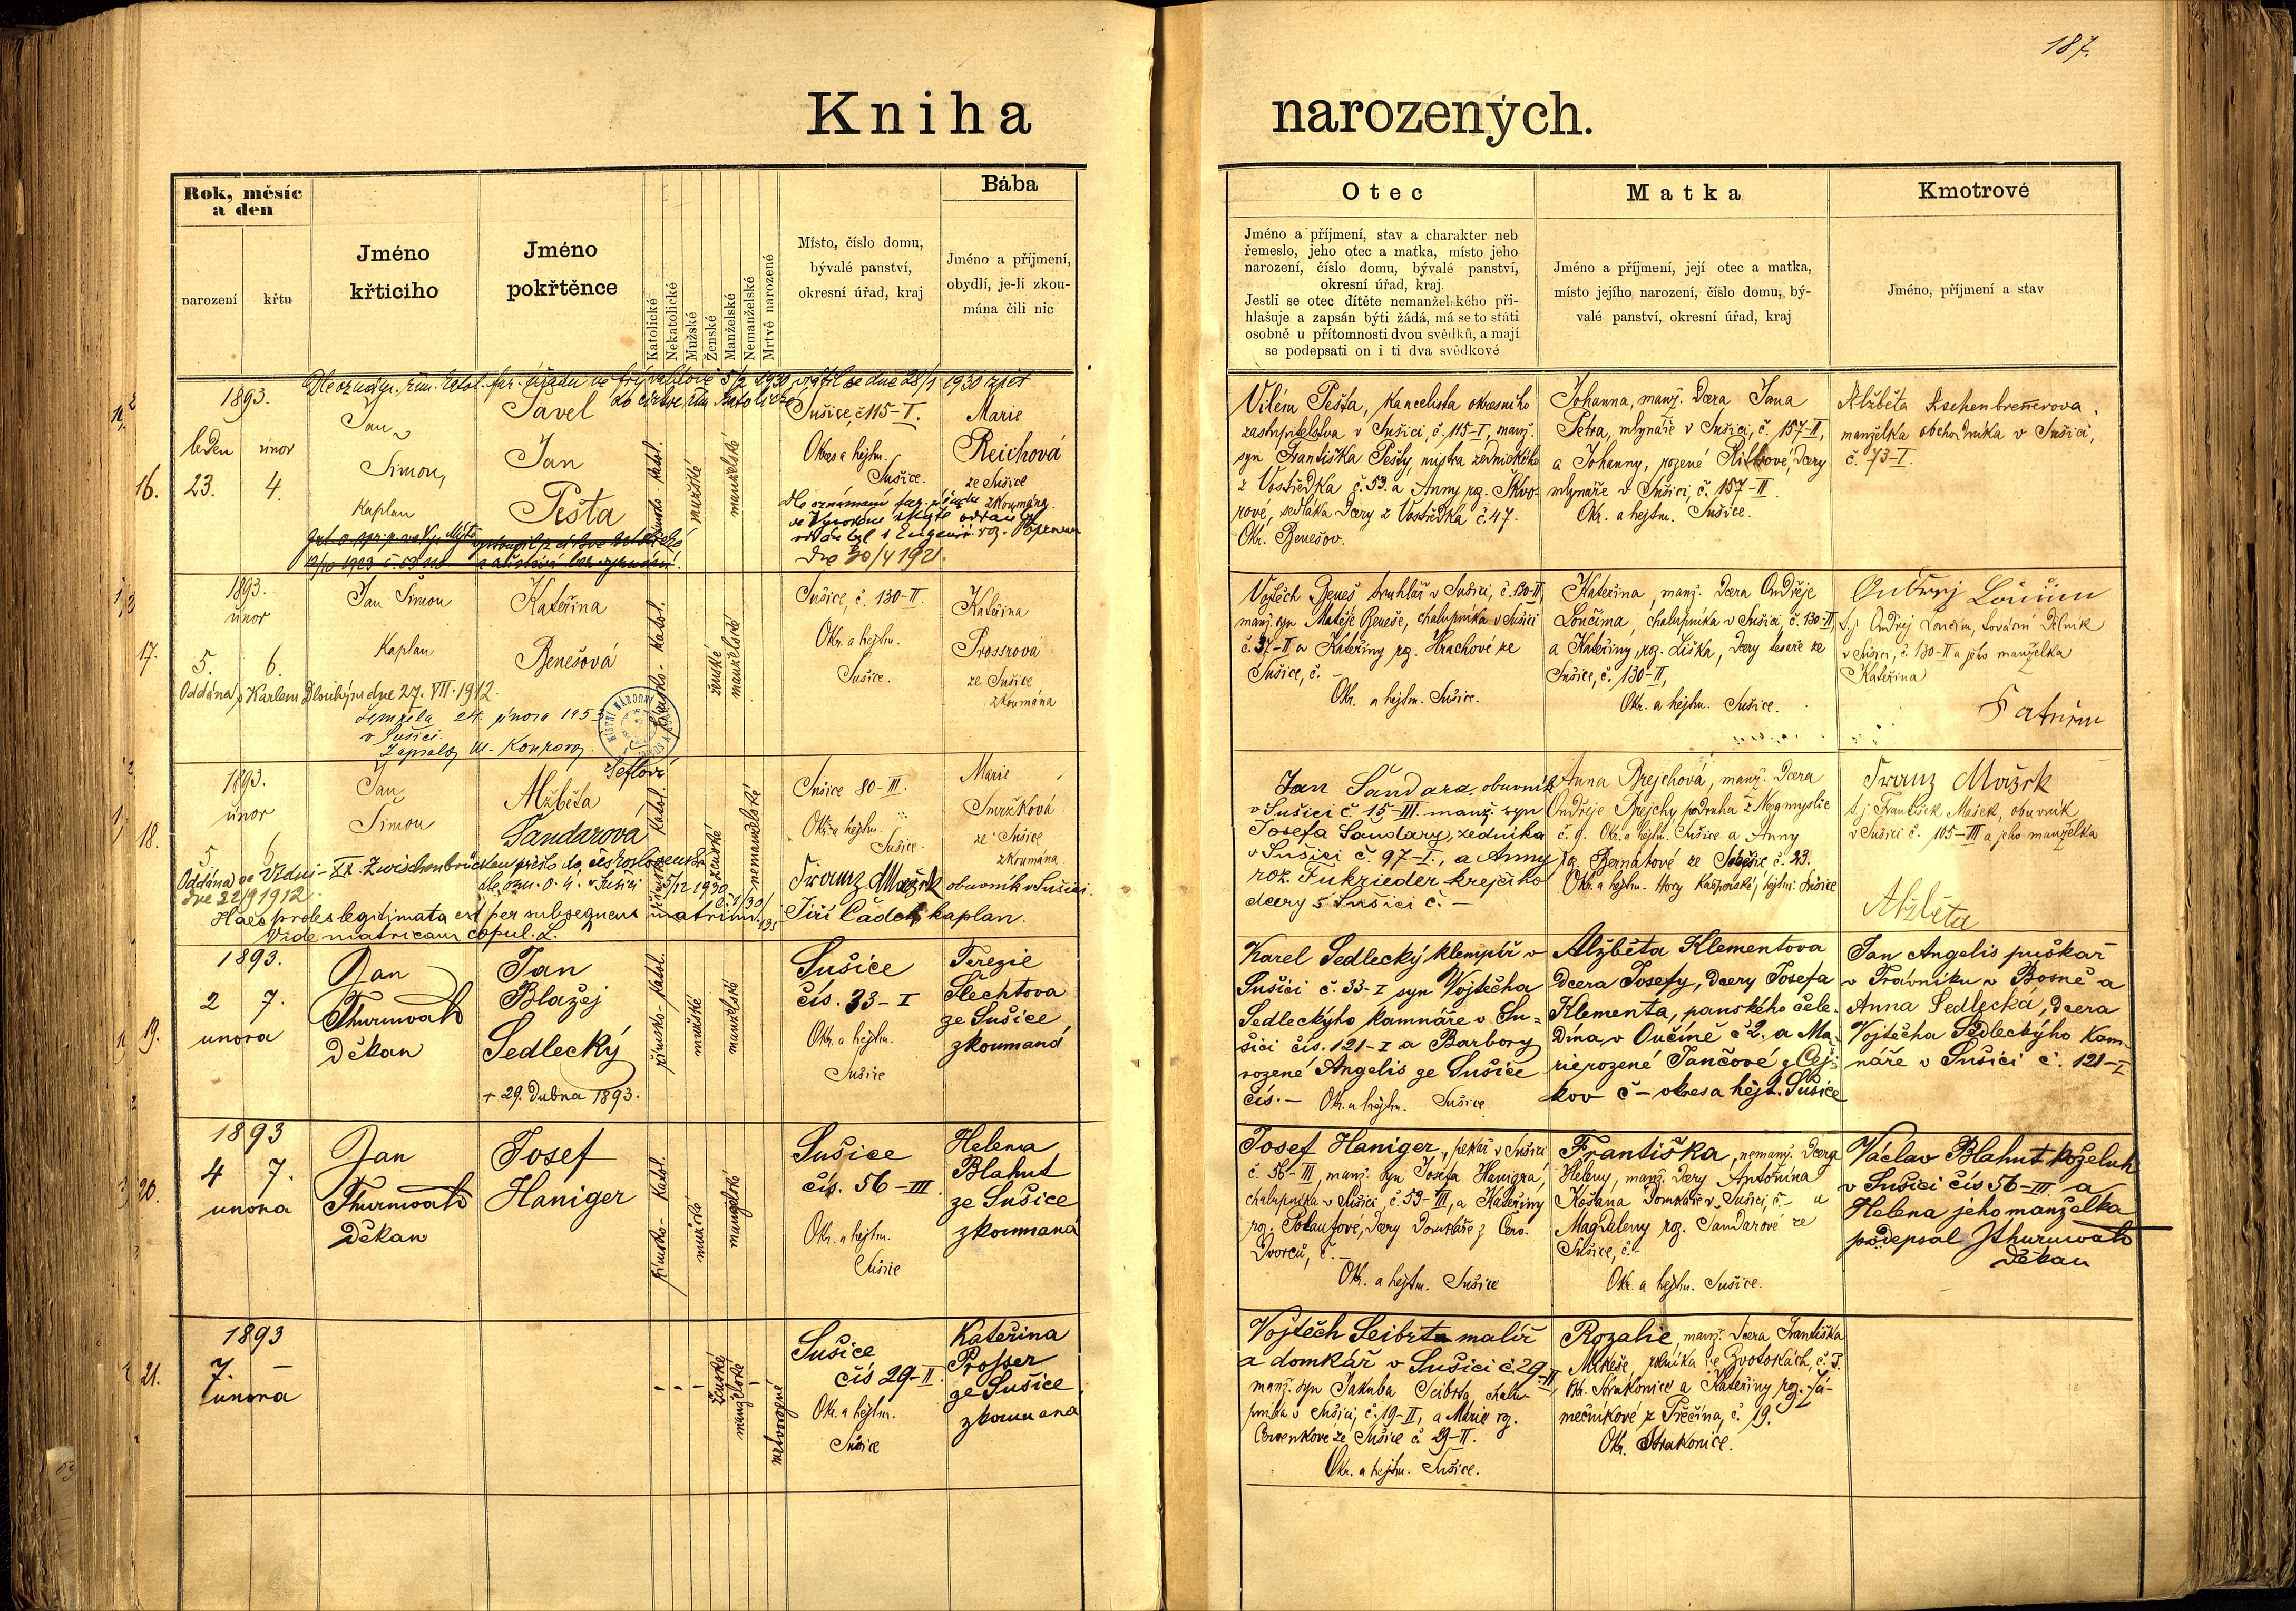 187.
Kniha narozených.
Rok, měsíc
a den
narození
křtu
Jméno
křticího
Jméno
pokřtěnce
Katolické
Nekatolické
Mužské
Ženské
Manželské
Nemanželské
Mrtvě narozené
Místo, číslo domu,
bývalé panství,
okresní úřad, kraj
Bába
Jméno a příjmení,
obydlí, je-li zkou-
mána čili nic
Otec
Jméno a příjmení, stav a charakter neb
řemeslo, jeho otec a matka, místo jeho
narození, číslo domu, bývalé panství,
okresní úřad, kraj.
Jestli se otec dítěte nemanželského při-
hlašuje a zapsán býti žádá, má se to státi
osobně u přítomnosti dvou svědků, a mají
se podepsati on i ti dva svědkové
Matka
Jméno a příjmení, její otec a matka,
místo jejího narození, číslo domu, bý-
valé panství, okresní úřad, kraj
Kmotrové
Jméno, příjmení a stav
16.
1893.
leden únor
23. 4.
Jan
Simon,
kaplan
Pavel
Jan
Pešta
římsko katol.
mužské
manželské
Sušice, č 115-I.
Okres a hejtm.
Sušice.
Marie
Reichová
ze Sušice
zkoumána.
dne 30/4 1921.
Vilém Pešta, kancelista okresního
zastupitelstva v Sušici, č. 115-I, manž.
syn Františka Pešty, mistra zednického
z Vostředka č. 53. a Anny roz. Škvo-
rové, sedláka dcery z Vostředka č. 47.
Okr. Benešov.
Johanna, manž. dcera Jana
Petra, mlynáře v Sušici, č. 157-II,
a Johanny, rozené dcery
mlynáře v Sušici, č. 157-II.
Okr. a hejtm. Sušice.
Alžběta
manželka obchodníka v Sušici,
č. 73-I.
17.
1893.
únor
5. 6
Jan Šimon
kaplan
Kateřina
Benešová
římsko-katol.
ženské
manželské
Sušice, č. 130-II.
Okr. a hejtm.
Sušice.
Kateřina
Prosserova
ze Sušice
zkoumána
Oddána s Karlem Dlouhým dne 27. VII. 1912.
Zemřela 24. února 1953
v Sušici.
Vojtěch Beneš truhlář v Sušici, č. 130-II,
manž. syn Matěje Beneše, chalupníka v Sušici
č. 37-II a Kateřiny roz. Hrachové ze
Sušice, č. -
Okr. a hejtm. Sušice.
Kateřina, manž. dcera Ondřeje
Lončíma, chalupníka v Sušici, č. 130-II,
a Kateřiny, roz. Liška, dcery tesaře ze
Sušice, č. 130-II,
Okr. a hejtm. Sušice.
v Sušici, č. 130-II a jeho manželka
Kateřina
18.
1893.
únor
5 6
Jan
Šimon
Alžběta
Šandarová
římsko katol.
ženské
nemanželské
Sušice 80-III.
Okr. a hejtm.
Sušice.
Marie
Smržková
ze Sušice
zkoumána.
Franz Mašek obuvník v Sušici.
Jiří Čadek, kaplan.
dne 22/9 1912.
Haec proles legitimata est per subsequens matrim.
Vide matricam copul. L.
Jan Šandara, obuvník
v Sušici č. 15-III. manž. syn
Josefa Šandary, zedníka
v Sušici č. 97-I., a Anny
roz. Fukrieder krejčího
dcery z Sušici č. -
Anna Brejchová, manž. dcera
Ondřeje Brejchy podruha z Nezamyslic
č. 9. Okr. a hejtm. Sušice a Anny
roz. Bernatové ze Soběšic č. 23.
Okr. a hejtm. Hory Kašperské, hejtm. Sušice
Franz Mašek
t.j. František Mašek, obuvník
v Sušici č. 105-III a jeho manželka
Alžběta
19.
1893.
2 7.
unora
Jan
Thurnwald
Děkan
Jan
Blažej
Sedlecký
+ 29. Dubna 1893.
římsko-katol.
mužské
manželské
Sušice
čís. 33-I
Okr. a hejtm.
Sušice
Terezie
Šlechtova
ze Sušice
zkoumaná
Karel Sedlecký klempíř v
Sušici č. 33-I syn Vojtěcha
Sedleckýho kamnáře v Su-
šici čís. 121-I a Barbory
rozené Angelis ze Sušice
čís. - Okr. a hejtm. Sušice
Alžběta Klementova
Dcera Josefy, Dcery Josefa
Klementa, panského čele-
dína v Vučíně č 2. a Ma-
rie rozené Jančové z Čej-
kov č - okres a hejt. Sušice
Jan Angelis puškař
v Trávniku v Bosně a
Anna Sedlecká, dcera
Vojtěcha Sedleckýho kam-
náře v Sušici č. 121-I
20.
1893
4 7.
unora
Jan
Thurnwald
Děkan
Josef
Haniger
římsko-katol.
mužské
manželské
Sušice
čís. 56-III.
Okr. a hejtm.
Sušice
Helena
Blahut
ze Sušice
zkoumaná
Josef Haniger, pekař v Sušici
č. 56-III, manž. syn Josefa Hanigra,
chalupníka v Sušici, č. 53-III, a Kateřiny
Dvorců, č. -
Okr. a hejtm. Sušice
Františka, nemanž. Dcera
Heleny, manž. dcery Antonína
Košana domkáře v Sušici, č. - a
Magdaleny roz. Šandarové ze
Sušice, č. -
Okr. a hejtm. Sušice.
Václav Blahut koželuh
v Sušici čís 56-III a
Helena jeho manželka
podepsal JThurnwald
Děkan
21.
1893
7. -
února
ženské
manželské
mrtvorozené
Sušice
čís 29-II.
Okr. a hejtm.
Sušice
Kateřina
Prosser
ze Sušice
zkoumaná
Vojtěch Seibrt malíř
a domkář v Sušici č 29-II
manž. syn Jakuba Seibrta, chalu-
pníka v Sušici, č. 19-II, a Marie roz.
Červenkové ze Sušice č. 29-II.
Okr. a hejtm. Sušice.
Rozalie, manž. dcera Františka
Mikeše, rolníka ve Zvotokách, č. 3.
Okr. Strakonice a Kateřiny roz. Já-
mečníkové z Přečína, č. 19.
Okr. Strakonice.